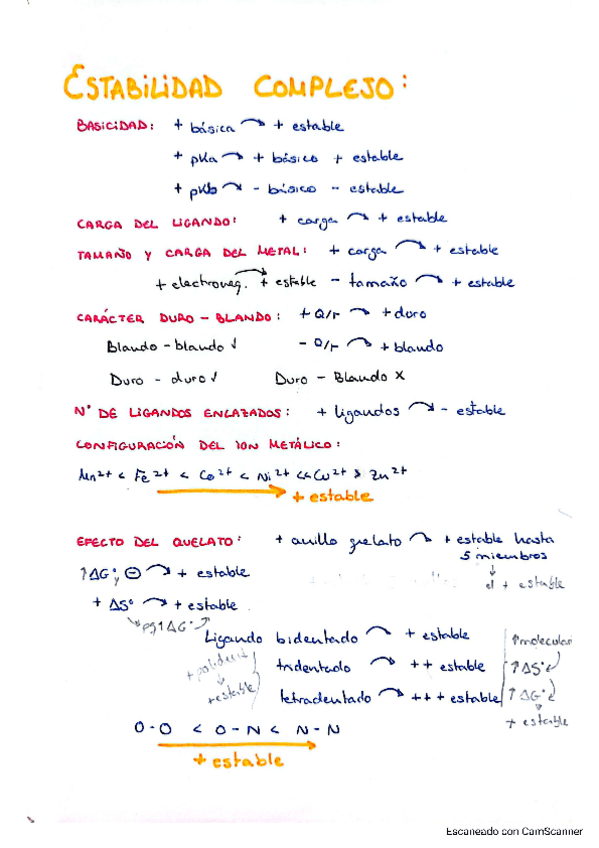 ESTABILIDAD COMPLEJO:
BASICIDAD: + básica → + estable
+ pKa → + básico + estable
+ pKb → - básico - estable
CARGA DEL LIGANDO: + carga → + estable
TAMAÑO Y CARGA DEL METAL: + carga → + estable
+ electroneg. → + estable - tamaño → + estable
CARÁCTER DURO - BLANDO: + Q/r → + duro
Blando - blando ✓ - Q/r → + blando
Duro - duro ✓ Duro - Blando X
Nº DE LIGANDOS ENLAZADOS: + ligandos → - estable
CONFIGURACIÓN DEL ION METÁLICO:
Mn²⁺ < Fe²⁺ < Co²⁺ < Ni²⁺ << Cu²⁺ > Zn²⁺
+ estable
EFECTO DEL QUELATO: + anillo quelato → + estable hasta
5 miembros
↓
el + estable
↑ΔG° y ⊖ → + estable
+ ΔS° → + estable
↑ΔG°
Ligando bidentado → + estable
tridentado → ++ estable
tetradentado → +++ estable
+ polident
↓
+ estable
↑molecular
↑ΔS°
↑ΔG°
↓
+ estable
O-O < O-N < N-N
+ estable
Escaneado con CamScanner